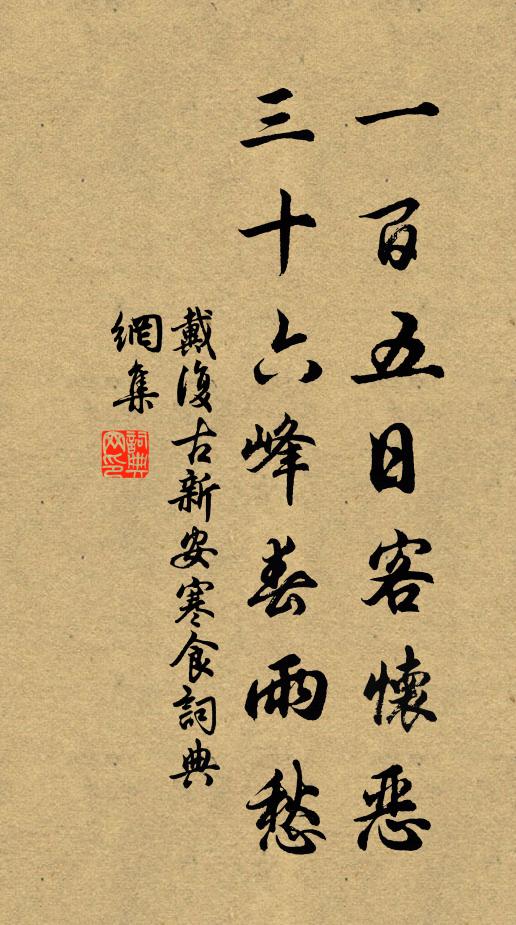 一百五日客懷惡
三十六峰春雨愁
戴復古新安寒食詞典
網集
詞典網印